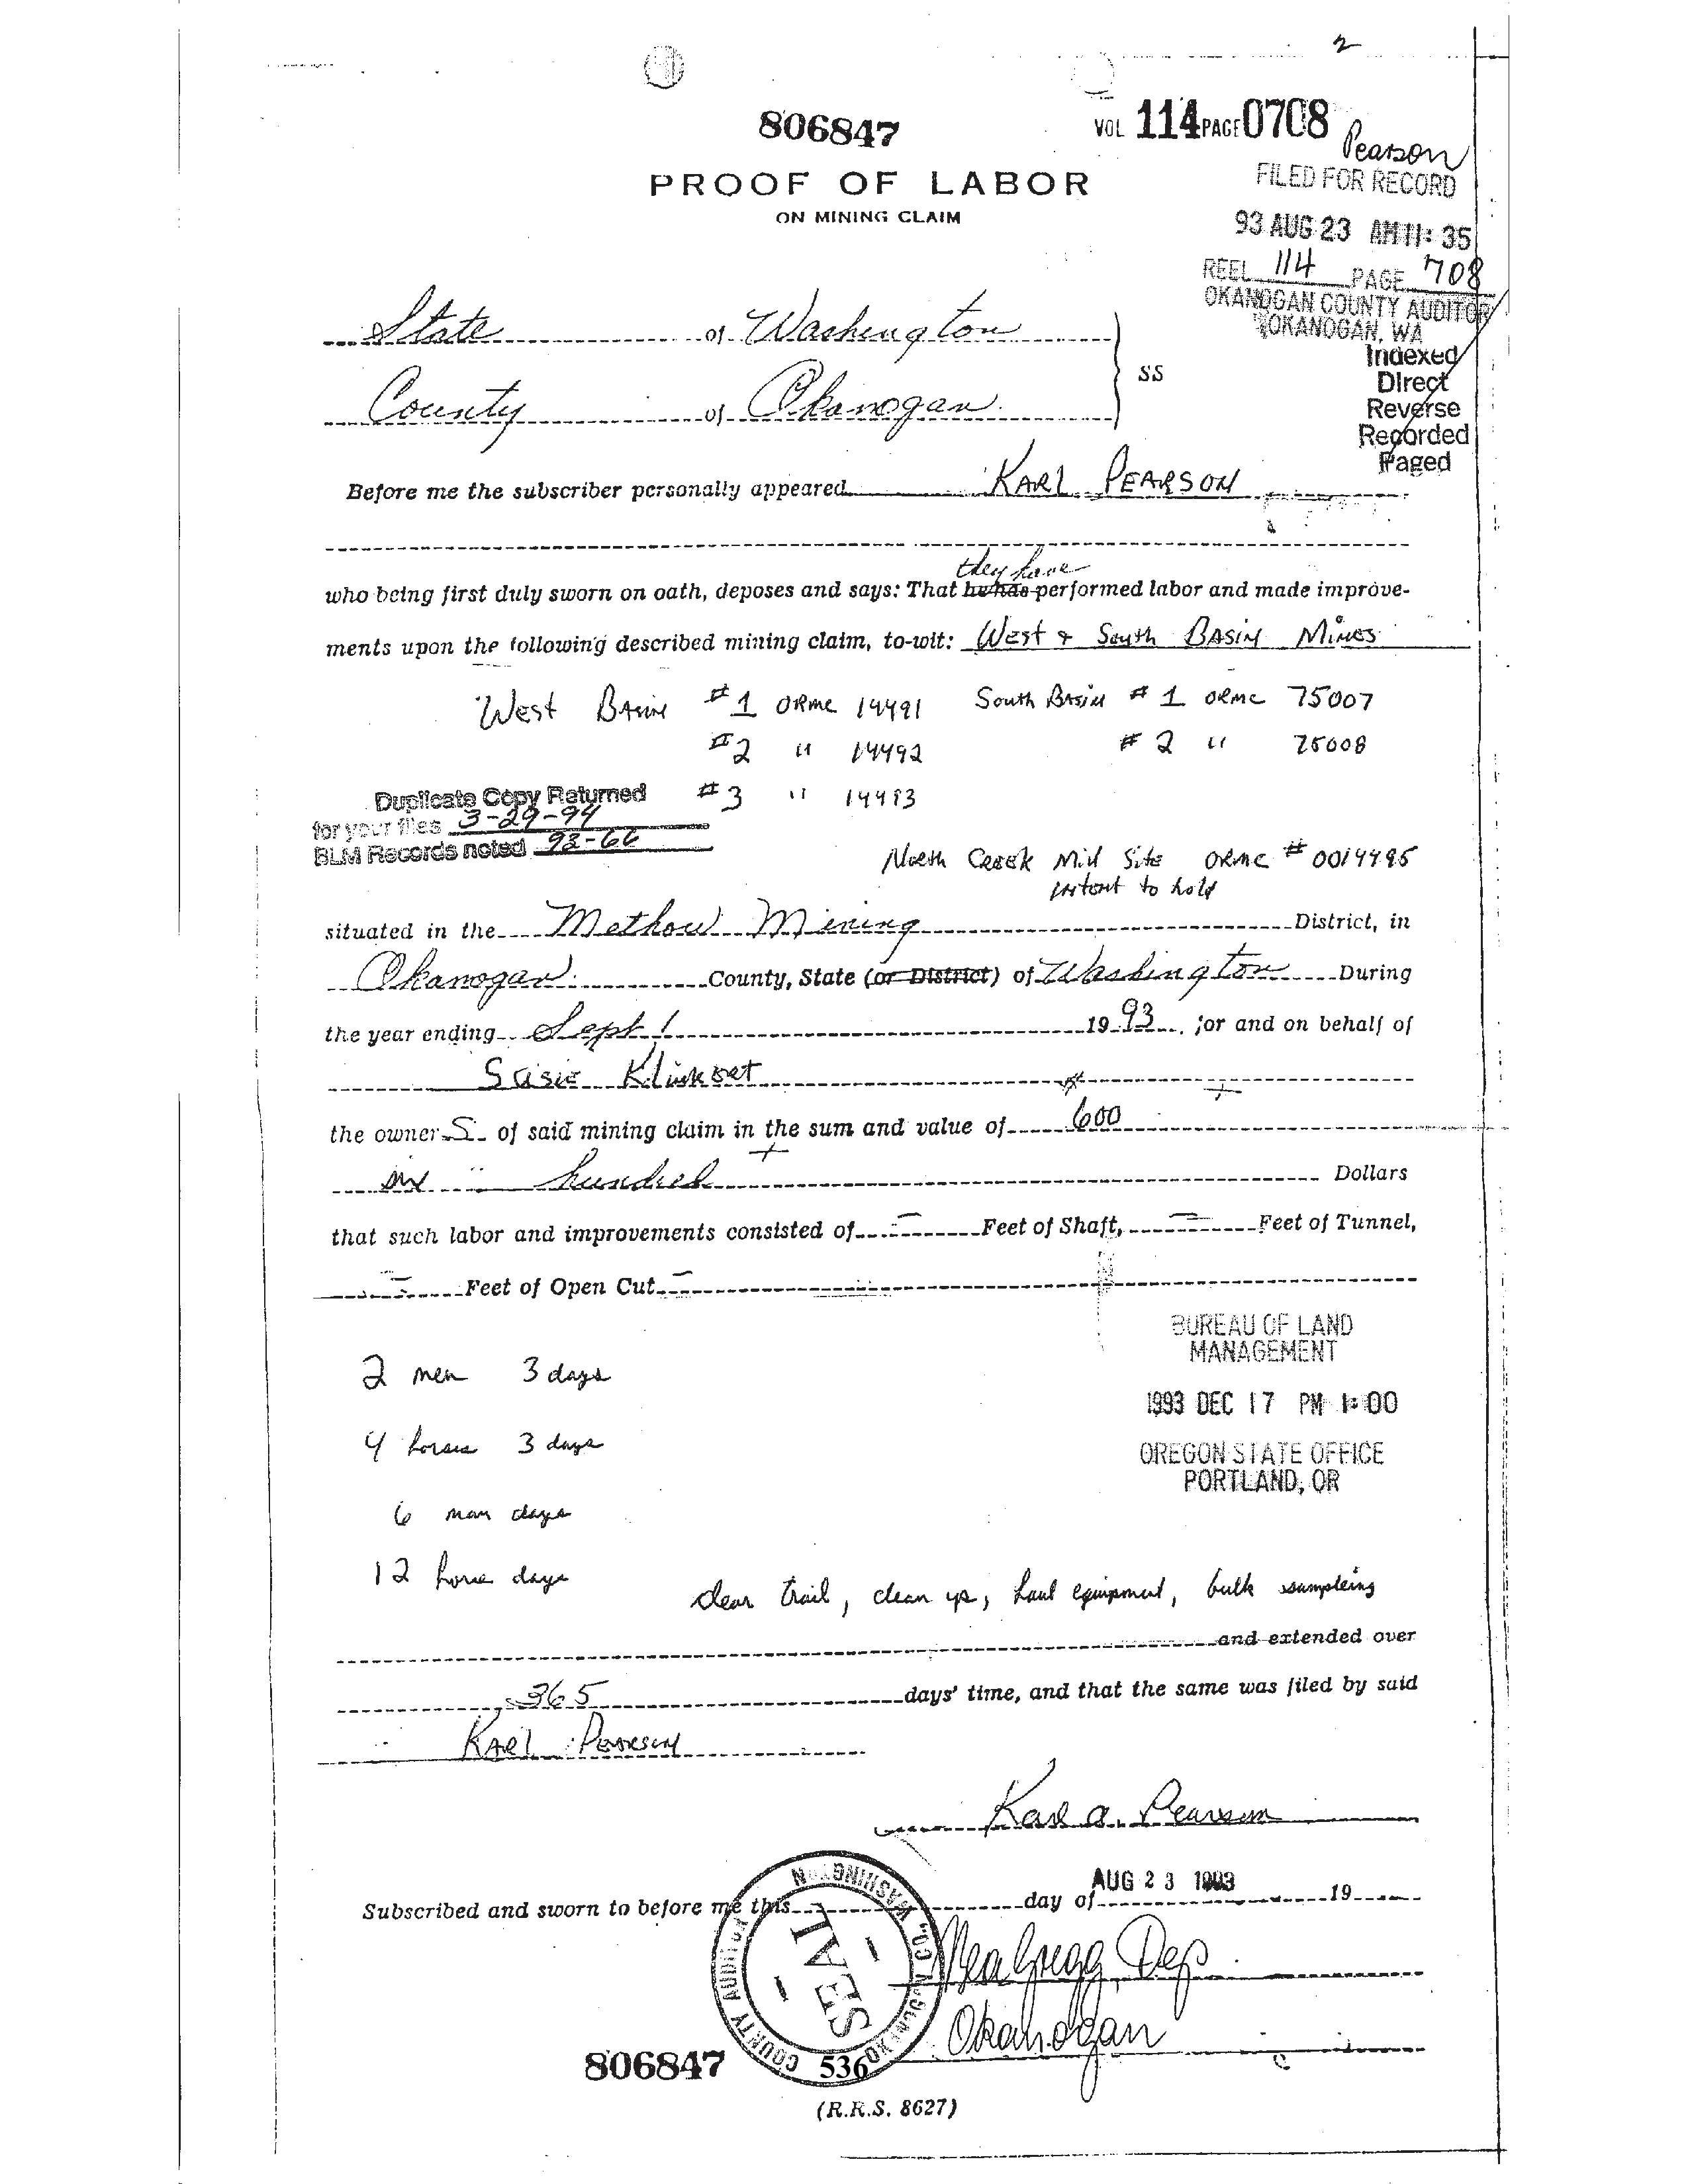 2
806847
VOL 114 PAGE 0708
Pearson
PROOF OF LABOR
FILED FOR RECORD
ON MINING CLAIM
93 AUG 23 AM 11: 35
REEL 114 PAGE 708
OKANOGAN COUNTY AUDITOR
OKANOGAN, WA
Indexed
Direct
Reverse
Recorded
Paged
State of Washington
County of Okanogan
SS
Before me the subscriber personally appeared KARL PEARSON
they have
who being first duly sworn on oath, deposes and says: That he has performed labor and made improve-
ments upon the following described mining claim, to-wit: West & South BASIN MINES
West BASIN #1 ORMC 14491 South BASIN #1 ORMC 75007
#2 " 14492 #2 " 75008
#3 " 14493
Duplicate Copy Returned
for your files 3-29-94
BLM Records noted 93-66
North Creek Mill Site ORMC # 0014495
intent to hold
situated in the Methow Mining District, in
Okanogan County, State (or District) of Washington During
the year ending Sept 1 1993, for and on behalf of
Susie
the owner S of said mining claim in the sum and value of 600
six hundred Dollars
that such labor and improvements consisted of - Feet of Shaft, - Feet of Tunnel,
- Feet of Open Cut -
BUREAU OF LAND
MANAGEMENT
1993 DEC 17 PM 1:00
OREGON STATE OFFICE
PORTLAND, OR
2 men 3 days
4 horses 3 days
6 man days
12 horse days
clear trail, clean up, haul equipment, bulk sampleing
and extended over
365 days' time, and that the same was filed by said
KARL PEARSON
Karl A. Pearson
Subscribed and sworn to before me this day of AUG 23 1993 19
Gregg, Dep
Okanogan
COUNTY AUDITOR OKANOGAN CO., WASHINGTON
SEAL
536
806847
(R.R.S. 8627)